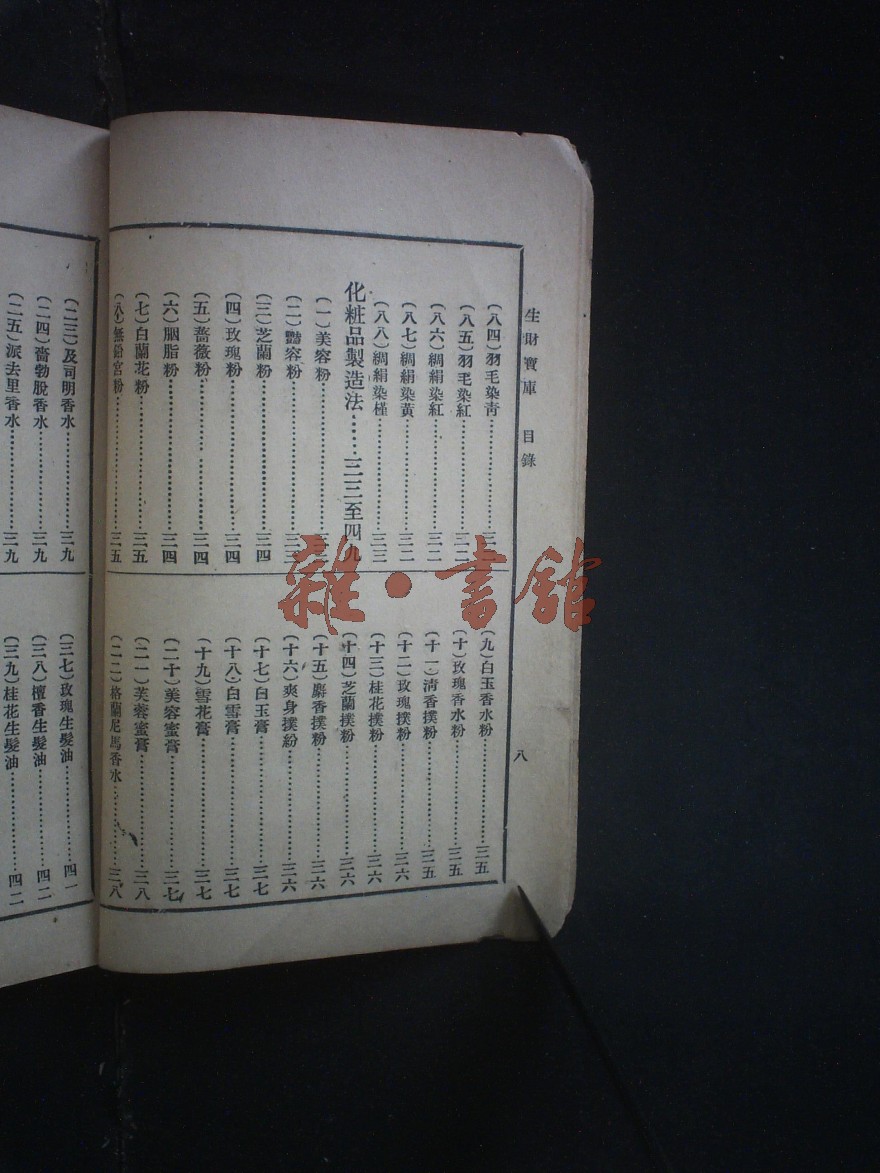 生財寶庫 目錄
八
(八四)羽毛染靑
(八五)羽毛染紅
(八六)綢絹染紅……三二
(八七)綢絹染黃……三二
(八八)綢絹染槿……三三
化粧品製造法……三三至四九
(一)美容粉
(二)豔容粉……三三
(三)芝蘭粉……三四
(四)玫瑰粉……三四
(五)薔薇粉……三四
(六)胭脂粉……三四
(七)白蘭花粉……三五
(八)無鉛宮粉……三五
(九)白玉香水粉……三五
(十)玫瑰香水粉……三五
(十一)淸香撲粉……三五
(十二)玫瑰撲粉……三六
(十三)桂花撲粉……三六
(十四)芝蘭撲粉……三六
(十五)麝香撲粉……三六
(十六)爽身撲粉……三六
(十七)白玉膏……三七
(十八)白雪膏……三七
(十九)雪花膏……三七
(二十)美容蜜膏……三七
(二一)芙蓉蜜膏……三八
(二二)格蘭尼馬香水……三八
(二三)及司明香水……三九
(二四)嗇勃脫香水……三九
(二五)派去里香水……三九
(三七)玫瑰生髮油……四一
(三八)檀香生髮油……四二
(三九)桂花生髮油……四二
雜·書館